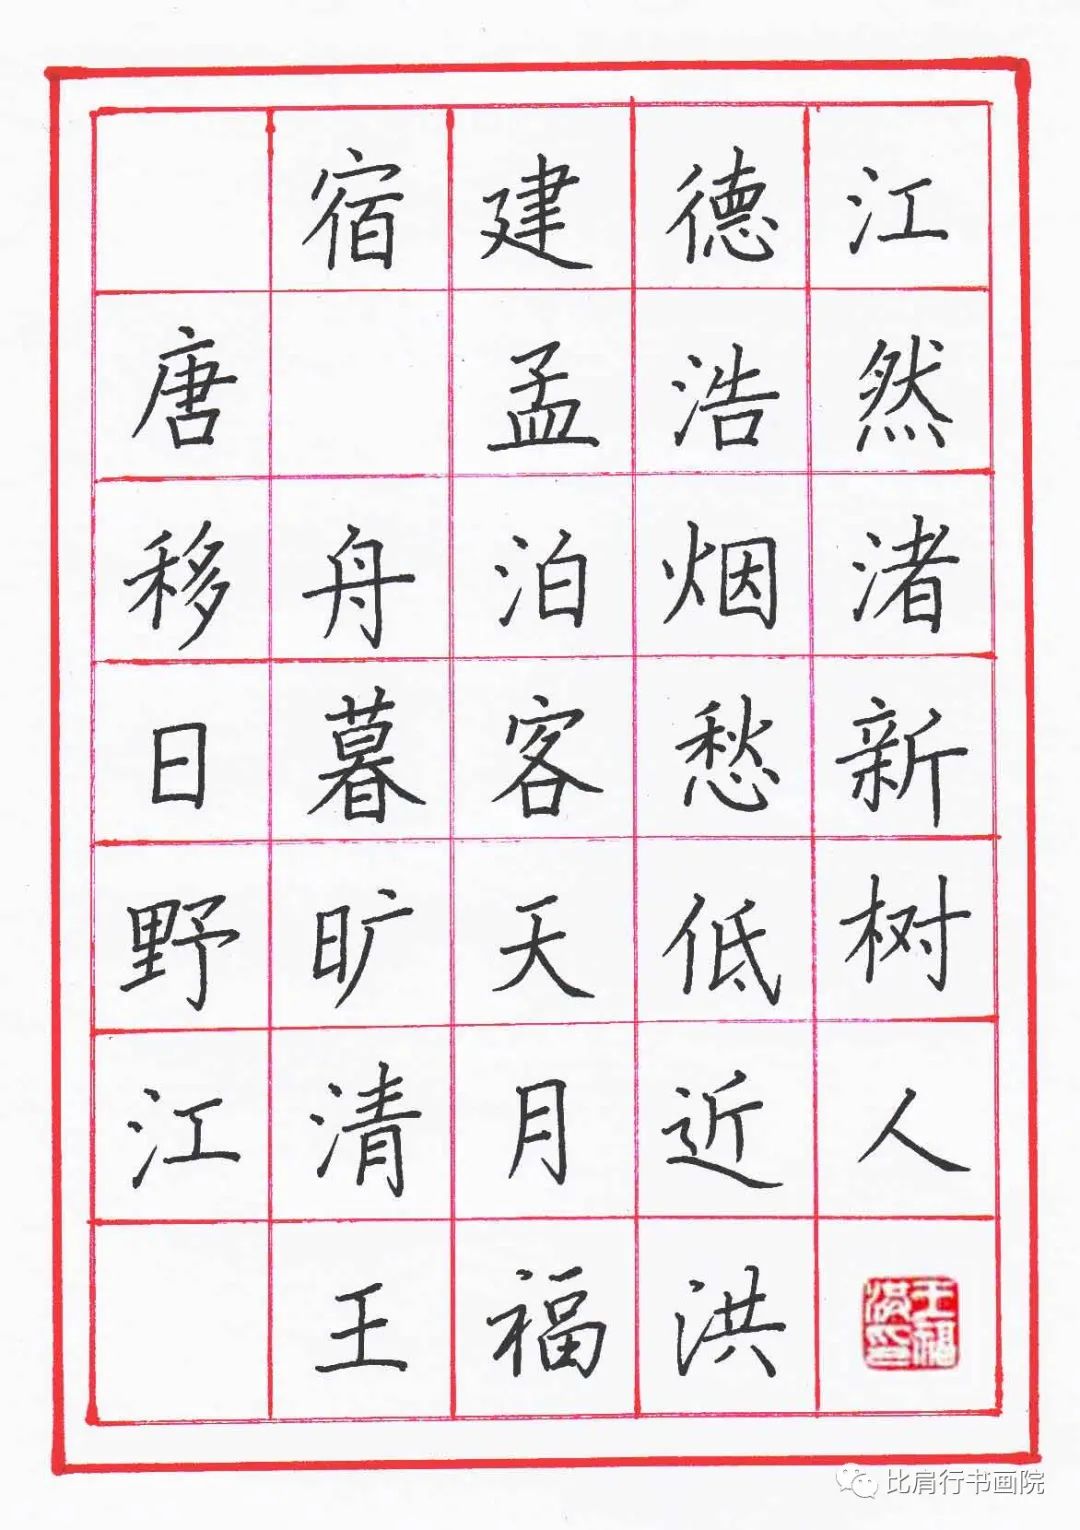 宿建德江
唐 孟浩然
移舟泊烟渚
日暮客愁新
野旷天低树
江清月近人
王福洪
王福洪印
比肩行书画院